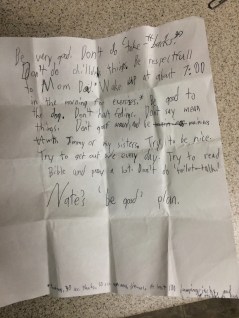 Be very good. Don't do
Don't do childish things. Be respectfull
to Mom Dad. Wake up at about 7:00
in the morning for exercises. Be good to
the dog. Don't hurt feelings. Don't say mean
things. Don't and be
with Jimmy or my sisters. Try to be nice.
Try to get out every day. Try to read
Bible and pray a lot. Don't do toilet-talk!
Nate's "be good" plan.